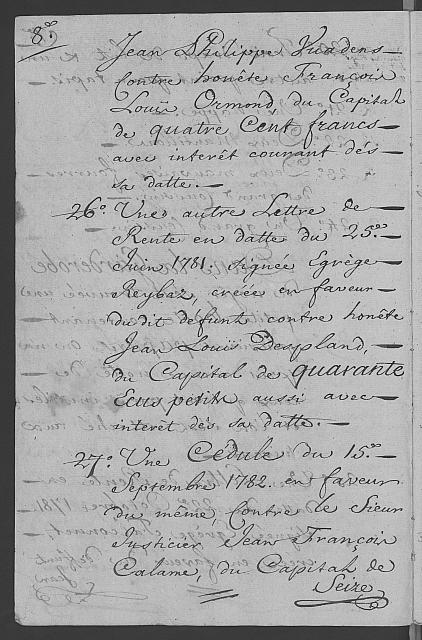 8.º
Jean Philippe Vuadens
Contre honête François
Louïs Ormond, du Capital
de quatre Cent francs
avec interêt courant dés
sa datte. —
26.º Une autre Lettre de
Rente en datte du 25.e
Juin 1781. signée Egrège
Reybaz, créée en faveur
dudit defunt contre honête
Jean Louïs Despland,
du Capital de quarante
Ecus petits aussi avec
interêt dés sa datte. —
27.º Une Cédule du 15.e
Septembre 1782. en faveur
du même, Contre le Sieur
Justicier Jean François
Calame, du Capital de
Seize